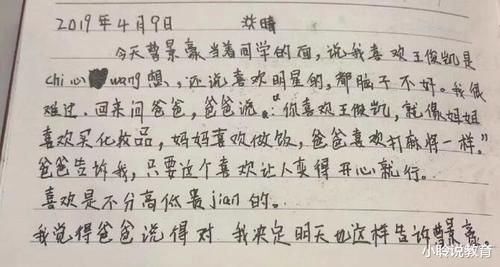 2019年4月9日 晴
今天曹景豪当着同学的面，说我喜欢王俊凯是
chi心wang想，还说喜欢明星的，都脑子不好。我很
难过，回来问爸爸，爸爸说：“你喜欢王俊凯，就像姐姐
喜欢买化妆品，妈妈喜欢做饭，爸爸喜欢打麻将一样。”
爸爸告诉我，只要这个喜欢让人变得开心就行。
喜欢是不分高低贵jian的。
我觉得爸爸说得对，我决定明天也这样告诉曹景豪。
小聆说教育